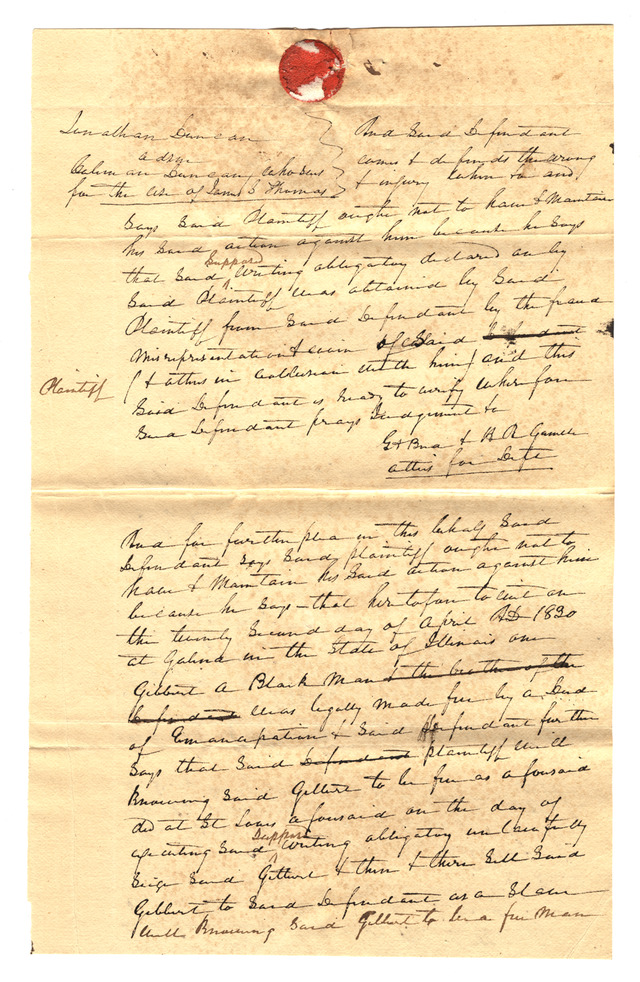 Jonathan Duncan
adsm
Coleman Duncan, who sues
for the use of James S Thomas
And Said Defendant
comes & defends the wrong
& injury when &c and
Says Said Plaintiff ought not to have & Maintain
his Said action against him because he Says
that Said Supposed Writing obligatory declared on by
Said Plaintiff was obtained by Said
Plaintiff from Said Defendant by the fraud
Misrepresentation & covin of Said Defendant
Plaintiff
(& others in collusion with him) and this
Said Defendant is ready to verify wherefore
Said Defendant prays Judgment &c
& H R Gamble
attys for Deft
And for further plea in this behalf Said
Defendant Says Said plaintiff ought not to
have & Maintain his Said action against him
because he Says – that heretofore to wit on
the twenty Second day of April AD 1830
at Galena in the State of Illinois one
Gilbert a Black Man & the brother of the
Defendant was legally made free by a Deed
of Emancipation & Said Defendant further
Says that Said Defendant plaintiff well
Knowing Said Gilbert to be free as aforesaid
did at St Louis aforesaid on the day of
executing Said Supposed Writing obligatory unlawfully
Seize Said Gilbert & then & there Sell Said
Gilbert to Said Defendant as a Slave
well Knowing Said Gilbert to be a free Man